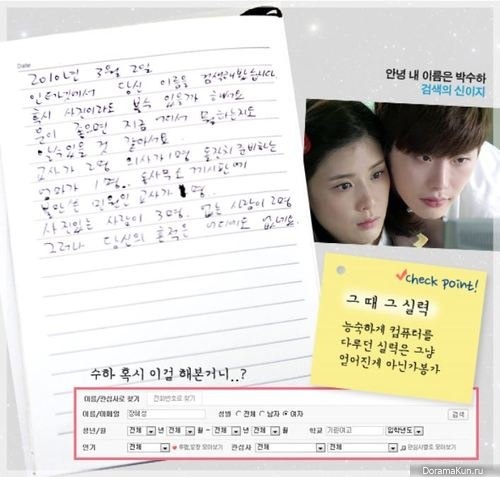 Date
2010년 3월 2일
인터넷에서 당신 이름을 검색해 봤습니다
혹시 사진이라도 볼수 있을까 해서요
운이 좋으면 지금 어디서 뭘 하는지도
알수있을 것 같아서요.
교사가 2명 의사가 1명
엄마가 1명.
사진있는 사람이 3명. 없는 사람이 2명
그러나 당신의 흔적은 어디에도 없네요.
안녕 내 이름은 박수하
검색의 신이지
check point!
그 때 그 실력
능숙하게 컴퓨터를
다루던 실력은 그냥
얻어진게 아닌가봉가
수하 혹시 이걸 해본거니..?
이름/관심사로 찾기 전화번호로 찾기
이름/이메일 장혜성 성별 전체 남자 여자 검색
생년/월 전체 년 전체 월 - 전체 년 전체 월 학교 기린여고 입학년도
인기 전체 전체 관심사 전체 전체
DoramaKun.ru